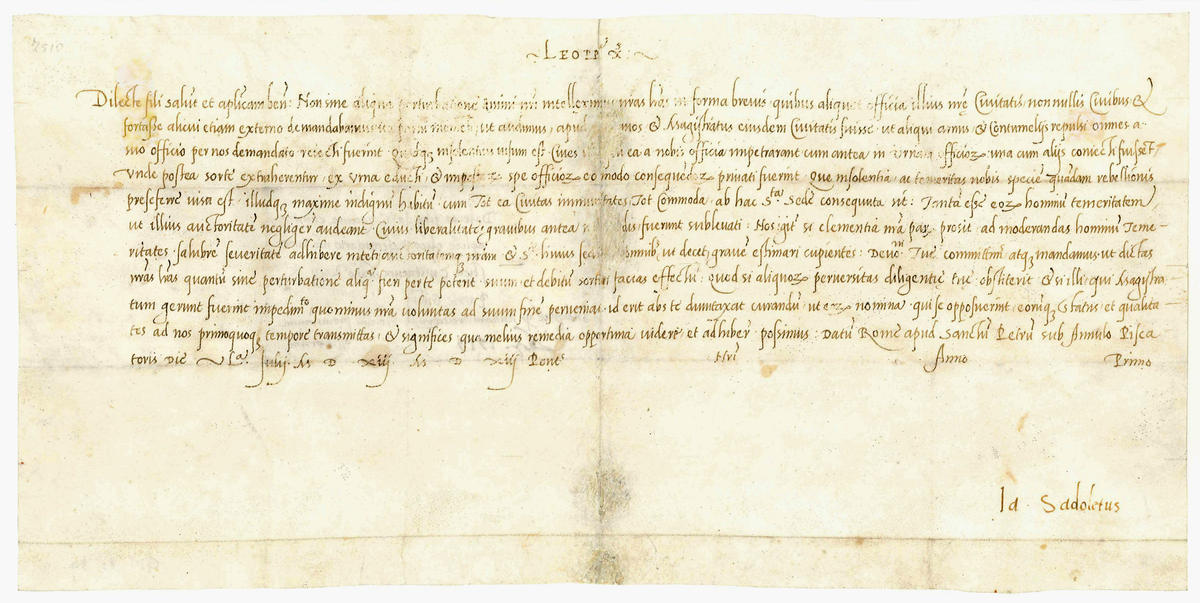 2510
LEO PP X
Dilecte fili salut et aplicam ben: Non sine aliqua perturbatione animi nri intelleximus nras lras in forma brevis quibus aliquot officia illius nre Civitatis, non nullis Civibus &
fortasse alicui etiam externo demandabamus, ut audimus, apud & Magistratus eiusdem Civitatis fuisse, ut aliqui armis & Contumelijs repulsi omnes a
suo officio per nos demandato reiecti fuerint Cives ea a nobis officia impetrarant cum antea in Urnam officioz una cum alijs coniecti fuisset,
Unde postea sorte extraherentur, ex Urna educti, & spe officioz eo modo consequedoz privati fuerint. Que insolentia, ac temeritas nobis specie quadam rebellionis
preseferre visa est, illudq maxime indignu habitu, cum Tot ea Civitas immunitates Tot Commoda ab hac Sta Sede consequuta sit. Tanta esse eoz hominu temeritatem,
ut illius auctoritate negliger audeant, Cuius liberalitate gravibus antea fuerint sublevati. Nos igit si clementia nra pax prosit ad moderandas hominu Teme-
ritates, salubre severitate adhibere auctoritatemq nram & omnibus, ut decet, grave estimari cupientes. Devotni Tue committim atq mandamus, ut dictas
nras lras quantu sine perturbatione aliqa fieri per te poterit suum et debitu sortiri facias effectu. quod si aliquoz perversitas diligentie tue obstiterit & si illi qui Magistra-
tum gerunt fuerint impedimto quominus nra voluntas ad suum fine perveniat id erit abs te dumtaxat curandu, ut eoz nomina qui se opposuerint eoruq Status et qualita-
tes ad nos primoquoq tempore transmittas, & significes quo melius remedia opportuna videre et adhiber possimus. Datu Rome apud Sanctu Petru sub Annulo Pisca-
toris Die Julij M D XIII Pontus nri Anno Primo
Ia. Sadoletus